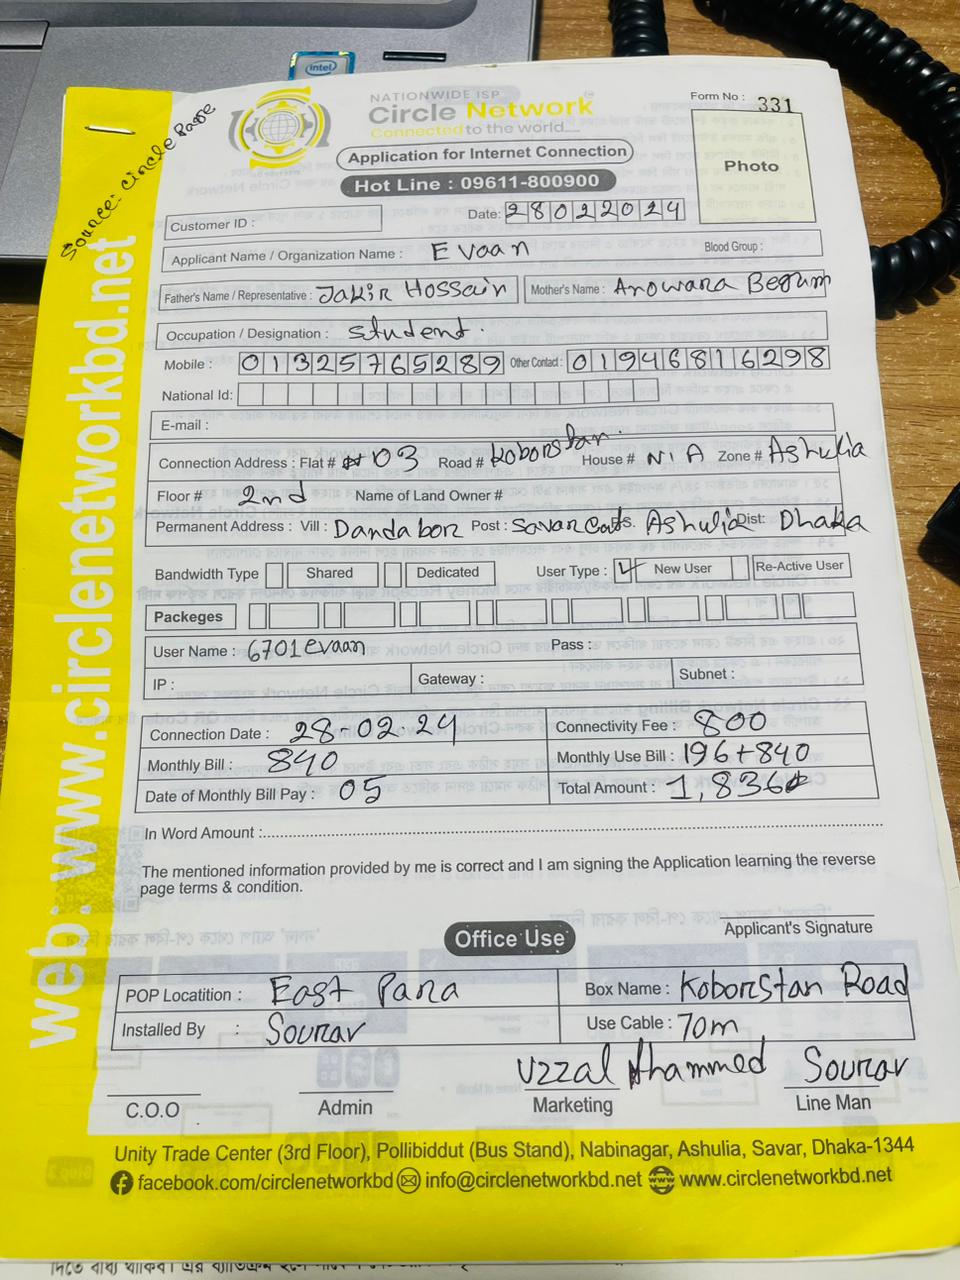 intel
Source: Circle Page
NATIONWIDE ISP
Circle Network
Connected to the world....
Form No : 331
Photo
Application for Internet Connection
Hot Line : 09611-800900
Customer ID :
Date: 28022024
Applicant Name / Organization Name : Evaan Blood Group :
Father's Name / Representative : Jakir Hossain Mother's Name : Anowara Begum
Occupation / Designation : Student.
Mobile : 01325765289 Other Contact : 01946816298
National Id:
E-mail :
Connection Address : Flat # 03 Road # Koborstan. House # N/A Zone # Ashulia
Floor # 2nd Name of Land Owner #
Permanent Address : Vill : Dandabor Post : Savar Cat Ps. Ashulia Dist: Dhaka
Bandwidth Type Shared Dedicated User Type : New User Re-Active User
Packeges
User Name : 6701evaan Pass :
IP : Gateway : Subnet :
Connection Date : 28-02-24 Connectivity Fee : 800
Monthly Bill : 840 Monthly Use Bill : 196+840
Date of Monthly Bill Pay : 05 Total Amount : 1,836
In Word Amount :
The mentioned information provided by me is correct and I am signing the Application learning the reverse
page terms & condition.
Applicant's Signature
Office Use
POP Locatition : East Para Box Name : Koborstan Road
Installed By : Sourav Use Cable : 70m
Uzzal Ahammed Sourav
C.O.O Admin Marketing Line Man
Unity Trade Center (3rd Floor), Pollibiddut (Bus Stand), Nabinagar, Ashulia, Savar, Dhaka-1344
facebook.com/circlenetworkbd info@circlenetworkbd.net www.circlenetworkbd.net
web: www.circlenetworkbd.net